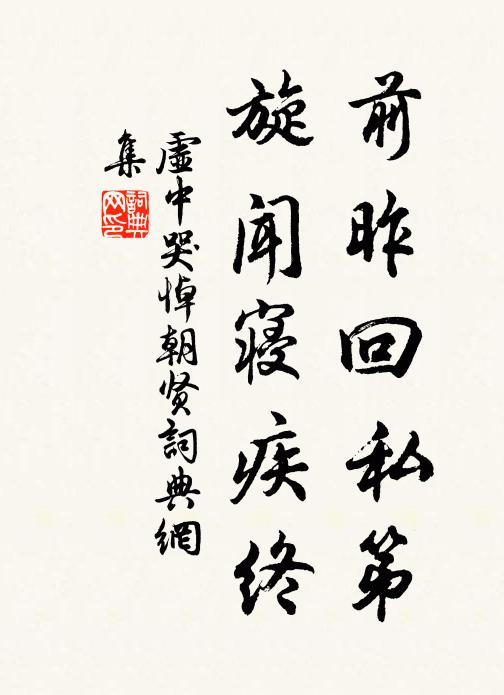 前昨回私第
旋闻寝疾终
虚中哭悼朝贤詞典網
集
詞典网印